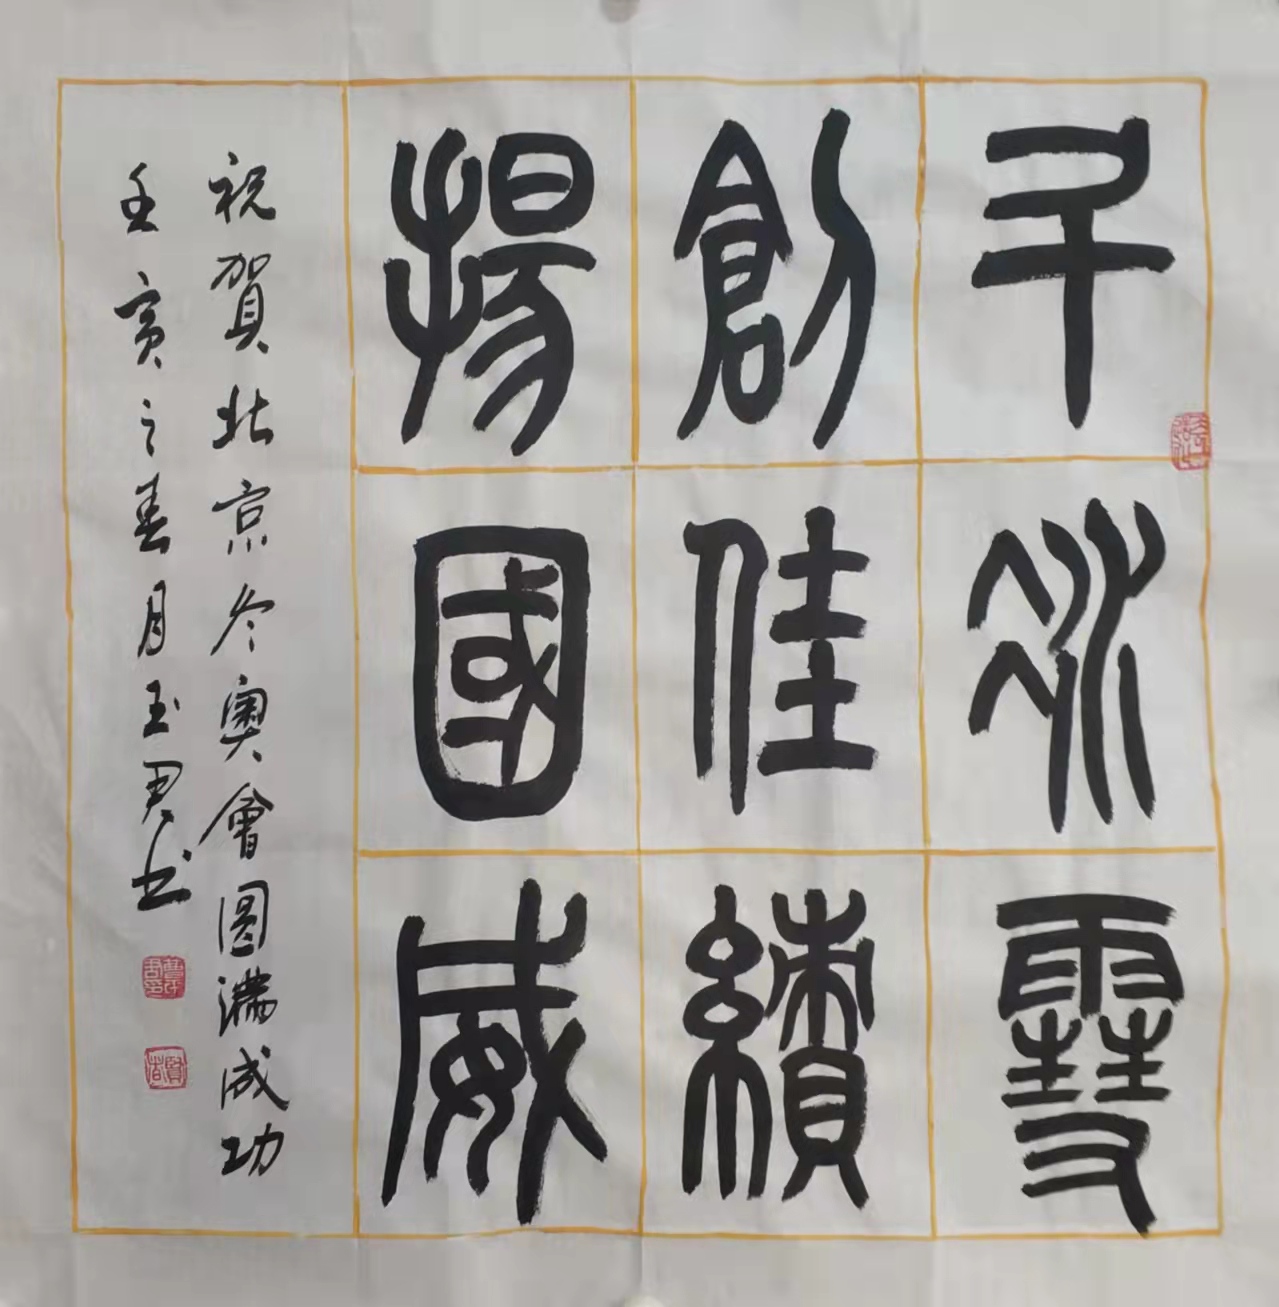 于冰雪
創佳績
揚國威
祝賀北京冬奧會圓滿成功
壬寅之春月玉君书